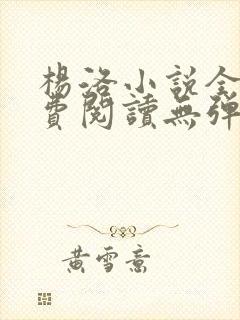 楊洛小說全
費閱讀無彈
黃雪意